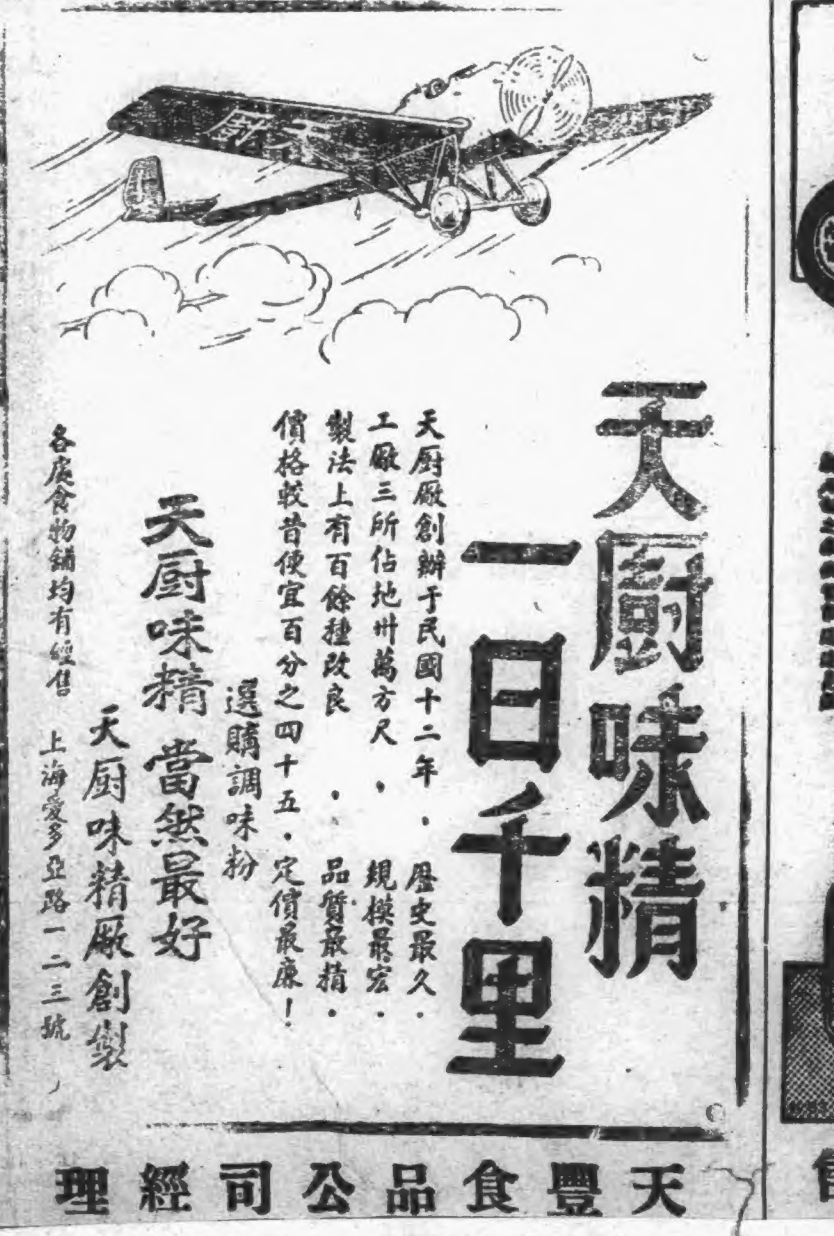 天厨
天厨味精
一日千里
天厨厰創辦于民國十二年，歷史最久．
工厰三所佔地卅萬方尺，規模最宏．
製法上有百餘種改良，品質最精．
價格較昔便宜百分之四十五．定價最廉！
選購調味粉
天厨味精 當然最好
天厨味精厰創製
各處食物鋪均有經售 上海愛多亞路一二三號
天豐食品公司經理